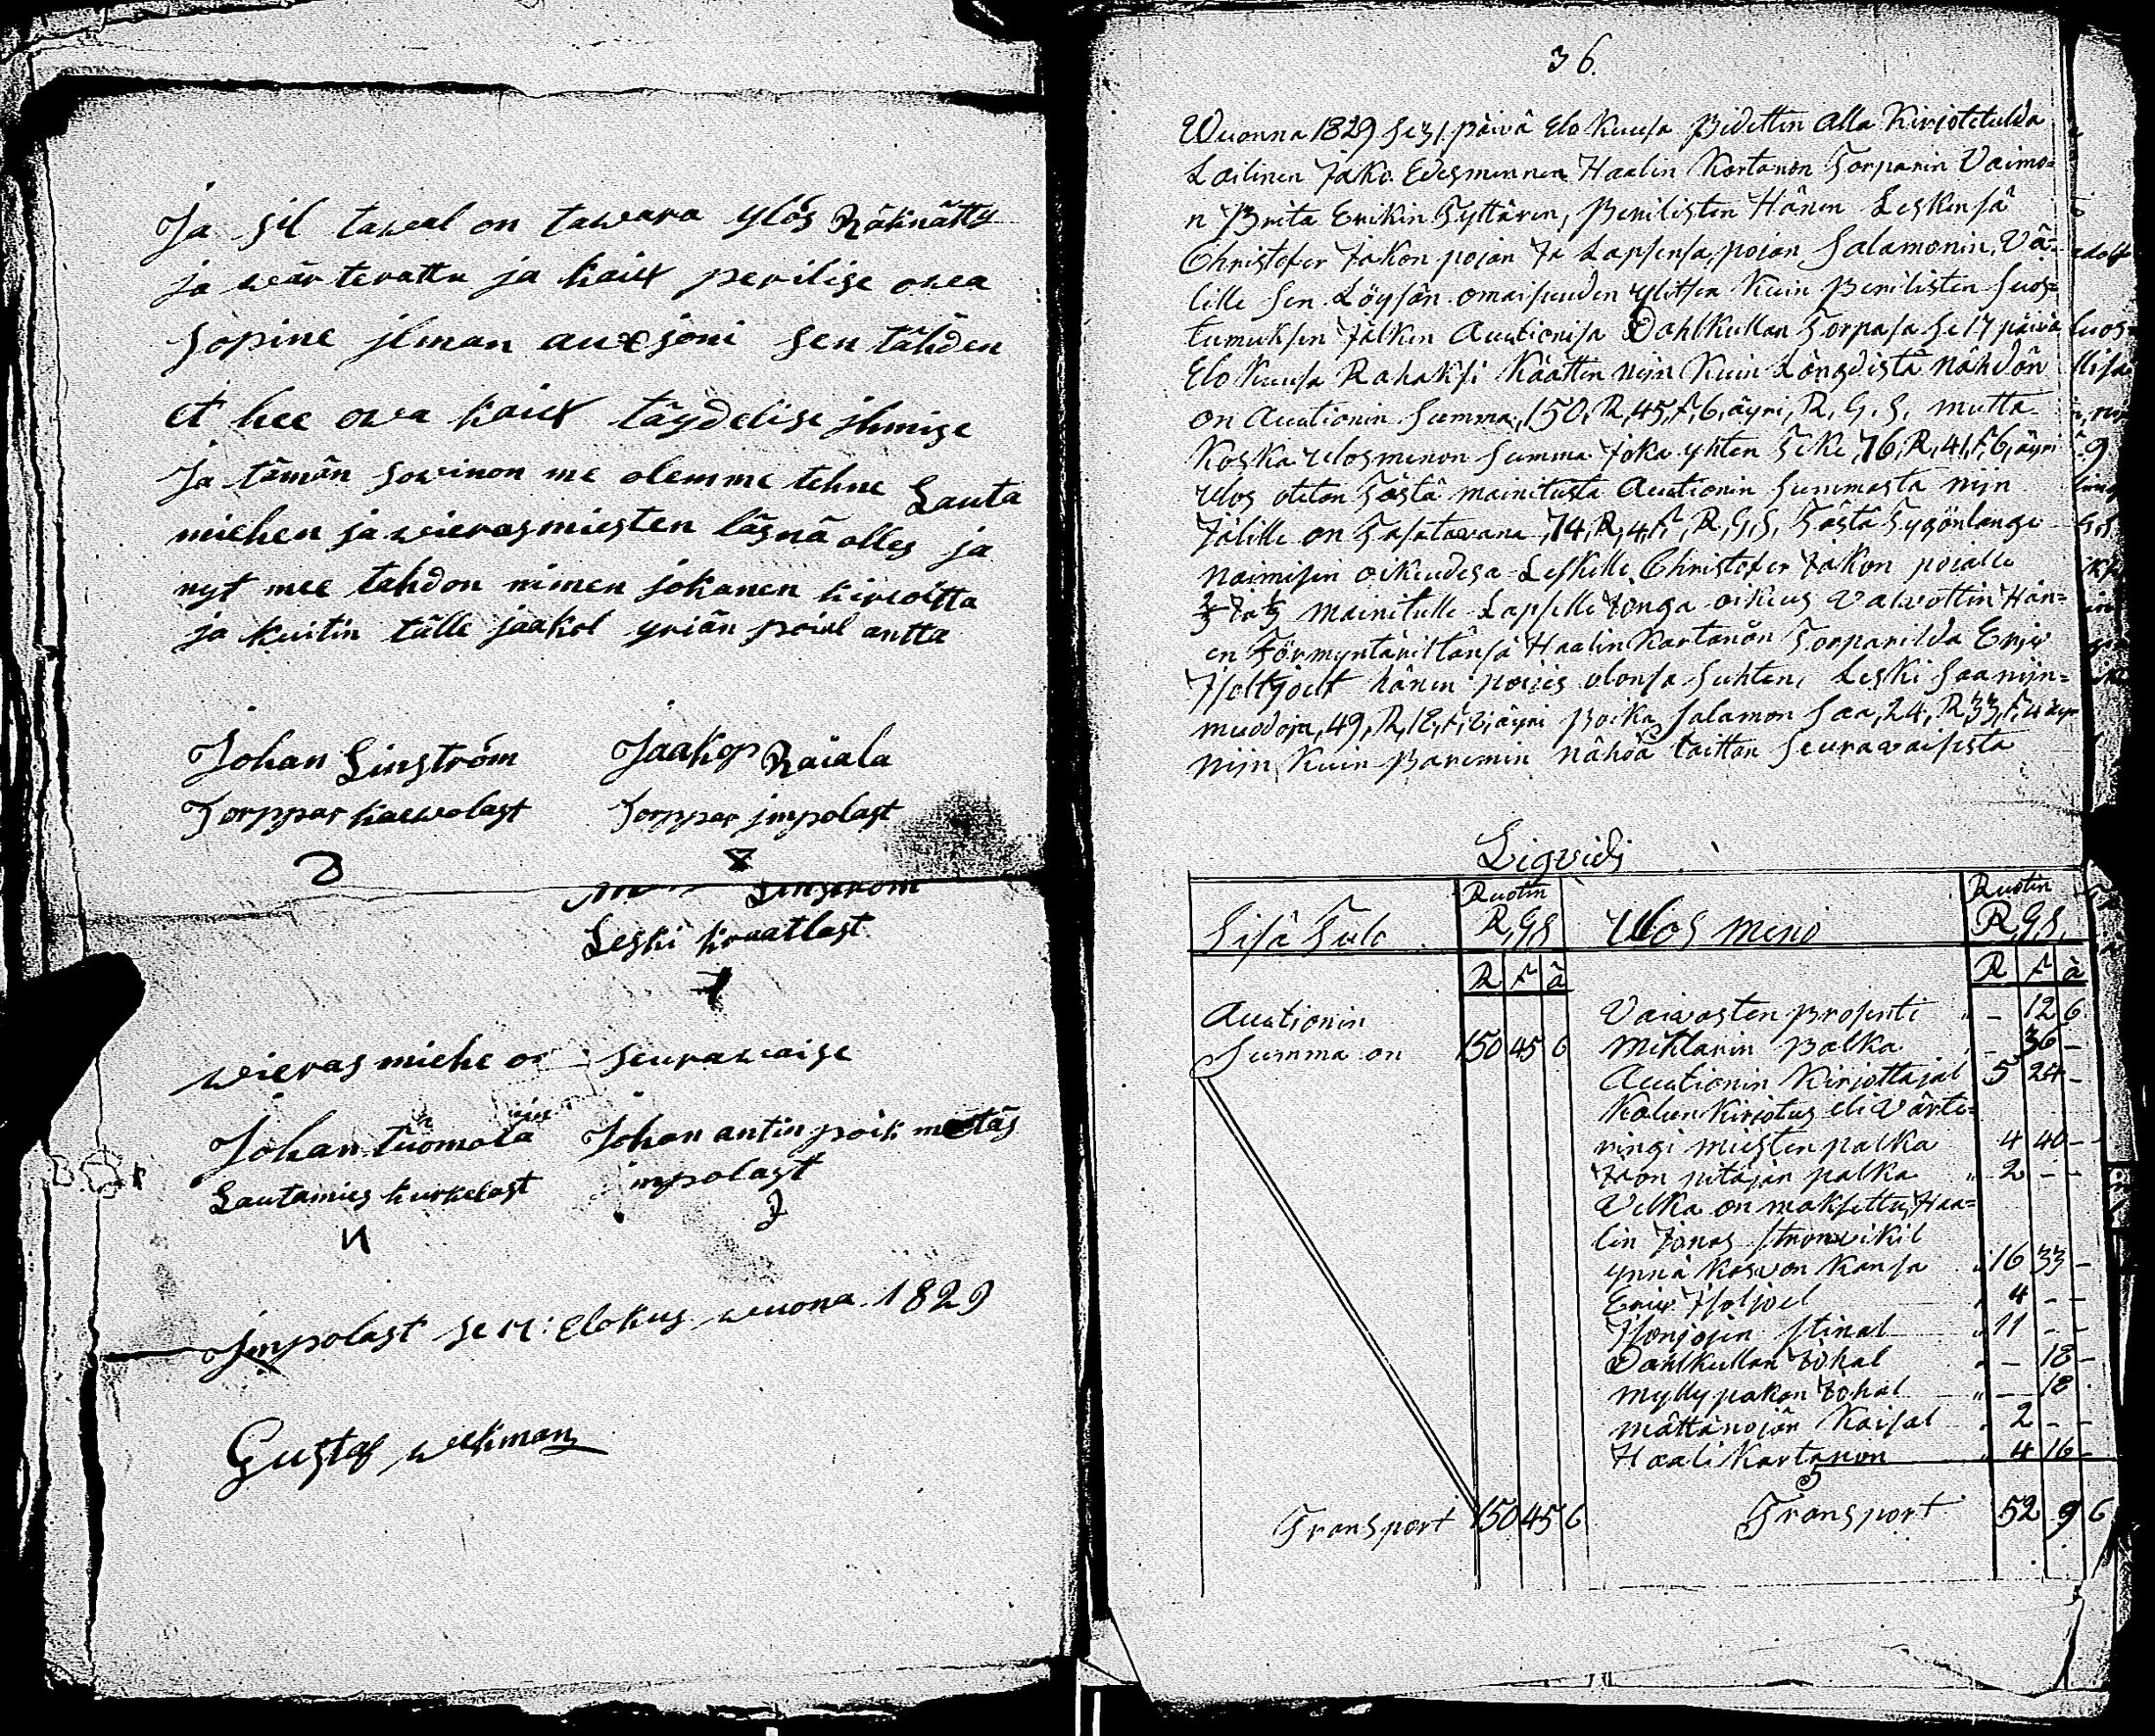 Ja sil tawal on tawara ylös Räknätty
ja wärterattu ja kaix perilise owa
sopine ilman auxjoni sen tähden
et hee owa kaix täydelise ihmise
Ja tämän sowinon me olemme tehne Lauta
miehen ja wierasmiesten läsnä olles ja
nyt mee tahdon nimen jokanen kirioitta
ja kuitin tälle jaakol yriän poial antta
Johan Linström Jaakop Raiala
Torppar kaewolast Torppar impolast
Linström
Leski kraatlast
wieras miehe o seurawaise
Johan tuomola Johan antin poik metäs
Lautamies kurkelast impolast
Impolast se 17: elokus wuona 1829
Gustaf wekman
36.
Wuonna 1829 se 31 päivä Elo Kuusa Pidettin alla Kirjotetulda
Lailinen Jako Edesmennen Haalin Kartanon Torparin Vaimo=
n Brita Erikin Tyttären, Perilisten Hänen Leskensä
Christofer Jakon pojan Ja Lapsensa, pojan Salamonin, Vä=
lille sen Löysän omaisuuden ylitsen Kuin Perilisten suos=
tumuksen jälken Auctionisa Dahlkullan Torpasa se 17 päivä
Elo Kuusa Rahaksi Käättin niin Kuin Längdistä nähdän
on Auctionin Summa, 150, R, 45, f, 6, äyri, R, G, S, mutta
Koska Ulosmenon Summa joka yhten Teke, 76, R, 41, f, 6, äyri
Ulos oteton Tästä mainitusta Auctionin Summasta niin
Jälille on Tasatavara, 74, R, 4, f, R, G, S, Tästä Tygönlange
Naimisen oikeudesa Leskelle Christofer Jakon pojalle
2/3 Ja 1/3 mainitulle Lapselle Jonga oikeus Valvottin Hän=
en Förmyntäriltänsä Haalin Kartanon Torparilda Eric
Isoltjoelt hänen poijes olonsa suhten, Leski saa niin=
muodoin, 49, R, 18, f, 8, äyri Poika Salamon saa, 24, R, 33, f, 4 äyr
niin Kuin Paremin nähdä taittan seuravaisesta
Liqvidi
Sisä Tulo Ruotin R, G, S Ulos meno Ruotin R, G, S,
R f ä R f ä
Auctionin Vaivasten prosenti " - 12 6
Summa on 150 45 6 Mittarin Palka - 36 -
Auctionin Kirjottajal 5 24 -
Kalun Kirjotus eli Värte=
ringi miesten palka 4 40 -
Jaon pitäjän palka " 2 - -
Velka on maksettu, Haa=
lin Jonas Stronvikil
ynnä Kasvon Kansa " 16 33 -
Eric Isoljoel " 4 - -
Isonjojen Stinal " 11 - -
Dahlkullan Johal " - 18 -
Myllypakan Johal " - 18 -
Mättänojän Kaisal " 2 - -
Haali Kartanon " 4 16 -
Transport 150 45 6 Transport 52 9 6